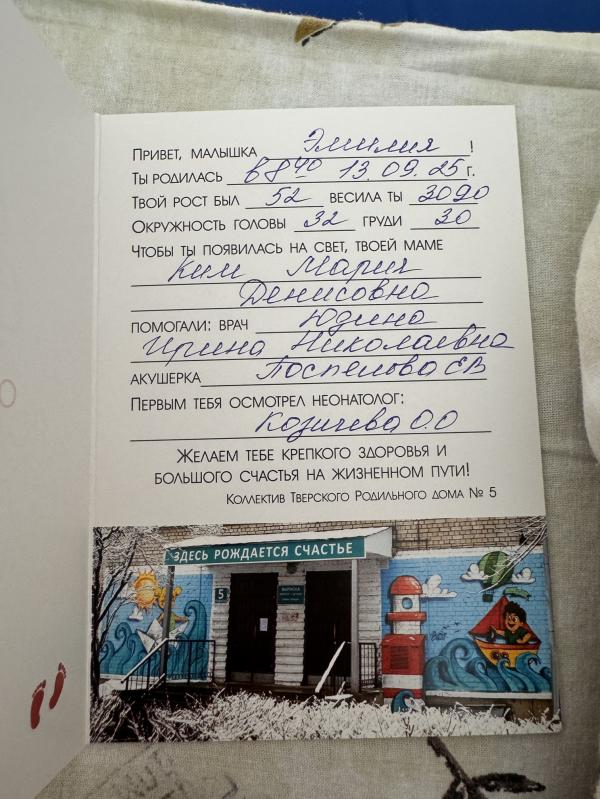 Привет, малышка Эмилия!
Ты родилась в 8⁴⁰ 13.09.25г.
Твой рост был 52 весила ты 3090
Окружность головы 32 груди 30
Чтобы ты появилась на свет, твоей маме
Ким Мария
Денисовна
помогали: врач Юдина
Ирина Николаевна
акушерка Поспелова ЕВ
Первым тебя осмотрел неонатолог:
Козичева О.О
Желаем тебе крепкого здоровья и
большого счастья на жизненном пути!
Коллектив Тверского Родильного дома № 5
ЗДЕСЬ РОЖДАЕТСЯ СЧАСТЬЕ
5
ВЫПИСКА